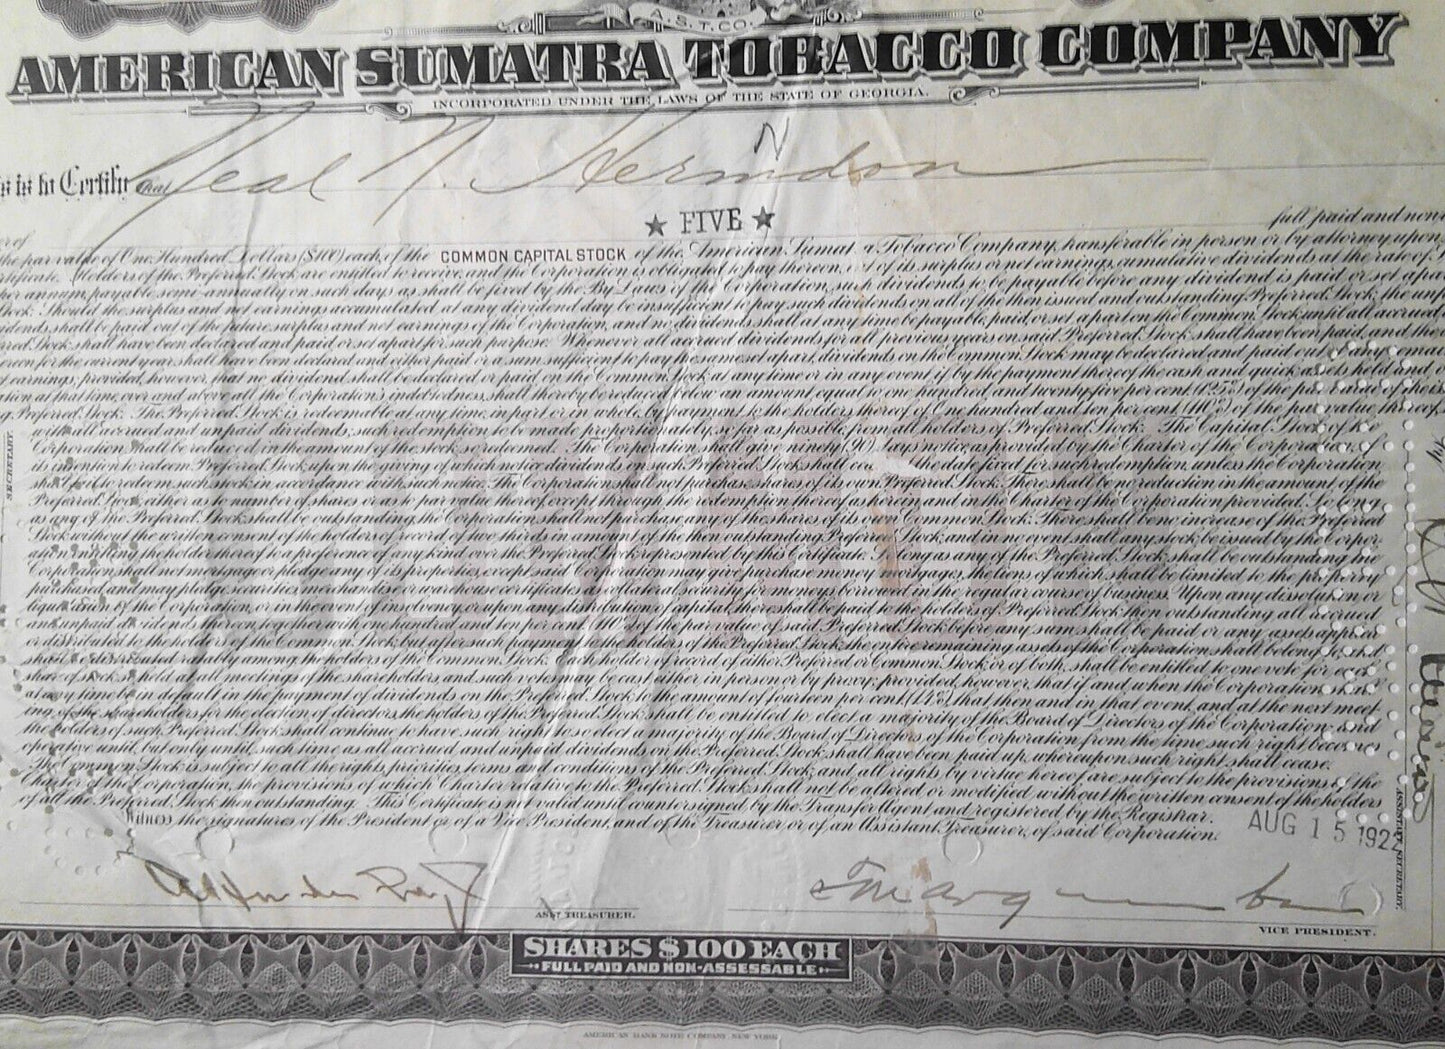 A.S.T.CO.
AMERICAN SUMATRA TOBACCO COMPANY
INCORPORATED UNDER THE LAWS OF THE STATE OF GEORGIA.
N
is to Certify that Neal N. Herndon
★ FIVE ★
full paid and non
the par value of One Hundred Dollars ($100) each, of the COMMON CAPITAL STOCK of the American Sumat a Tobacco Company, transferable in person or by attorney upon
Holders of the Preferred Stock are entitled to receive, and the Corporation is obligated to pay thereon, out of its surplus or net earnings, cumulative dividends at the rate of
per annum, payable semi-annually on such days as shall be fixed by the By Laws of the Corporation, such dividends to be payable before any dividend is paid or set apar
Stock. Should the surplus and net earnings accumulated at any dividend day be insufficient to pay such dividend on all of the then issued and outstanding Preferred Stock, the unp
dends shall be paid out of the future surplus and net earnings of the Corporation, and no dividends shall at any time be payable, paid, or set apart on the Common Stock until all accrued
red Stock, shall have been declared and paid or set apart for such purpose. Whenever all accrued dividends for all previous years on said Preferred Stock, shall have been paid, and the
eon for the current year, shall have been declared and either paid or a sum sufficient to pay the same set apart, dividends on the Common Stock may be declared and paid out
earnings, provided, however, that no dividend shall be declared or paid on the Common Stock at any time or in any event if by the payment thereof the cash and quick assets held and
tion at that time, over and above all the Corporation's indebtedness, shall thereby be reduced below an amount equal to one hundred and twenty-five per cent. (125%) of the par value of the
g Preferred Stock. The Preferred Stock is redeemable at any time, in part or in whole, by payment to the holders thereof of One hundred and ten per cent. (110%) of the par value thereof,
with all accrued and unpaid dividends, such redemption to be made proportionately, so far as possible, from all holders of Preferred Stock. The Capital Stock of the
Corporation shall be reduced in the amount of the stock so redeemed. The Corporation shall give ninety (90) days notice, as provided by the Charter of the Corporation, of
its intention to redeem Preferred Stock, upon the giving of which notice dividends on such Preferred Stock shall the date fixed for such redemption, unless the Corporation
shall fail to redeem such stock in accordance with such notice. The Corporation shall not purchase shares of its own Preferred Stock. There shall be no reduction in the amount of the
Preferred Stock either as to number of shares or as to par value thereof, except through the redemption thereof as herein and in the Charter of the Corporation provided. So long
as any of the Preferred Stock shall be outstanding, the Corporation shall not purchase any of the shares of its own Common Stock. There shall be no increase of the Preferred
Stock without the written consent of the holders of record of two thirds in amount of the then outstanding Preferred Stock, and in no event shall any stock be issued by the Corpor-
ation entitling the holder thereof to a preference of any kind over the Preferred Stock represented by this Certificate. So long as any of the Preferred Stock shall be outstanding the
Corporation shall not mortgage or pledge any of its properties, except said Corporation may give purchase money mortgages, the liens of which shall be limited to the property
purchased and may pledge securities, merchandise or warehouse certificates as collateral security for moneys borrowed in the regular course of business. Upon any dissolution or
liquidation of the Corporation, or in the event of insolvency, or upon any distribution of capital, there shall be paid to the holders of Preferred Stock then outstanding all accrued
and unpaid dividends thereon, together with one hundred and ten per cent (110%) of the par value of said Preferred Stock before any sum shall be paid or any assets applied
or distributed to the holders of the Common Stock; but after such payment to the holders of the Preferred Stock the entire remaining assets of the Corporation shall belong to and
shall be distributed ratably among the holders of the Common Stock. Each holder of record of either Preferred or Common Stock or of both, shall be entitled to one vote for each
share of stock held at all meetings of the shareholders and such votes may be cast either in person or by proxy; provided, however, that if and when the Corporation shall
at any time be in default in the payment of dividends on the Preferred Stock to the amount of fourteen per cent. (14%), that then and in that event, and at the next meet-
ing of the shareholders for the election of directors, the holders of the Preferred Stock shall be entitled to elect a majority of the Board of Directors of the Corporation and
the holders of such Preferred Stock shall continue to have such right to so elect a majority of the Board of Directors of the Corporation from the time such right becomes
operative until, but only until, such time as all accrued and unpaid dividends on the Preferred Stock shall have been paid up, whereupon such right shall cease.
The Common Stock is subject to all the rights, priorities, terms and conditions of the Preferred Stock, and all rights by virtue hereof are subject to the provisions of the
Charter of the Corporation, the provisions of which Charter relative to the Preferred Stock shall not be altered or modified without the written consent of the holders
of all the Preferred Stock then outstanding. This Certificate is not valid until countersigned by the Transfer Agent and registered by the Registrar.
Witness the signatures of the President or of a Vice President, and of the Treasurer or of an Assistant Treasurer, of said Corporation.
AUG 15 1922
ASST TREASURER.
VICE PRESIDENT.
SECRETARY.
ASSISTANT SECRETARY.
SHARES $100 EACH
FULL PAID AND NON-ASSESSABLE
AMERICAN BANK NOTE COMPANY, NEW YORK